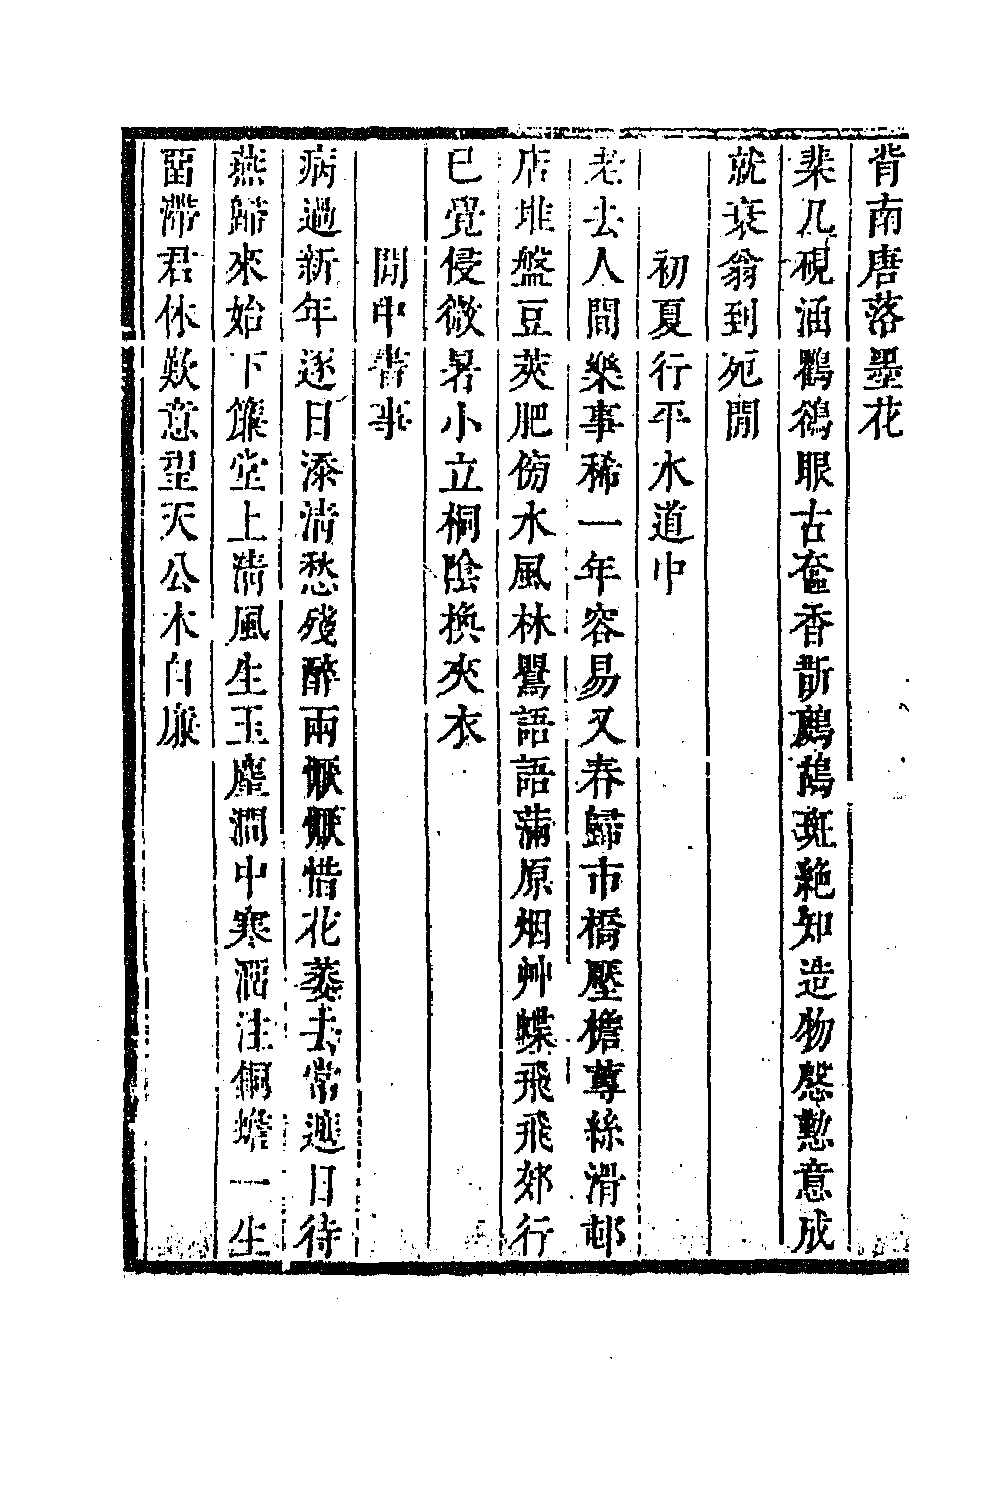 背南唐落墨花
棐几硯涵鸜鵒眼古奩香斮鷓鴣斑絶知造物慇懃意成
就衰翁到死閒
初夏行平水道中
老去人間樂事稀一年容易又春歸市橋壓檐蓴絲滑邨
店堆盤豆莢肥傍水風林鶯語語滿原烟艸蝶飛飛郊行
已覺侵微暑小立桐陰換夾衣
閒中書事
病過新年逐日添清愁殘醉兩懨懨惜花萎去常遮日待
燕歸來始下簾堂上清風生玉麈澗中寒溜注銅蟾一生
留滯君休歎意望天公本自廉